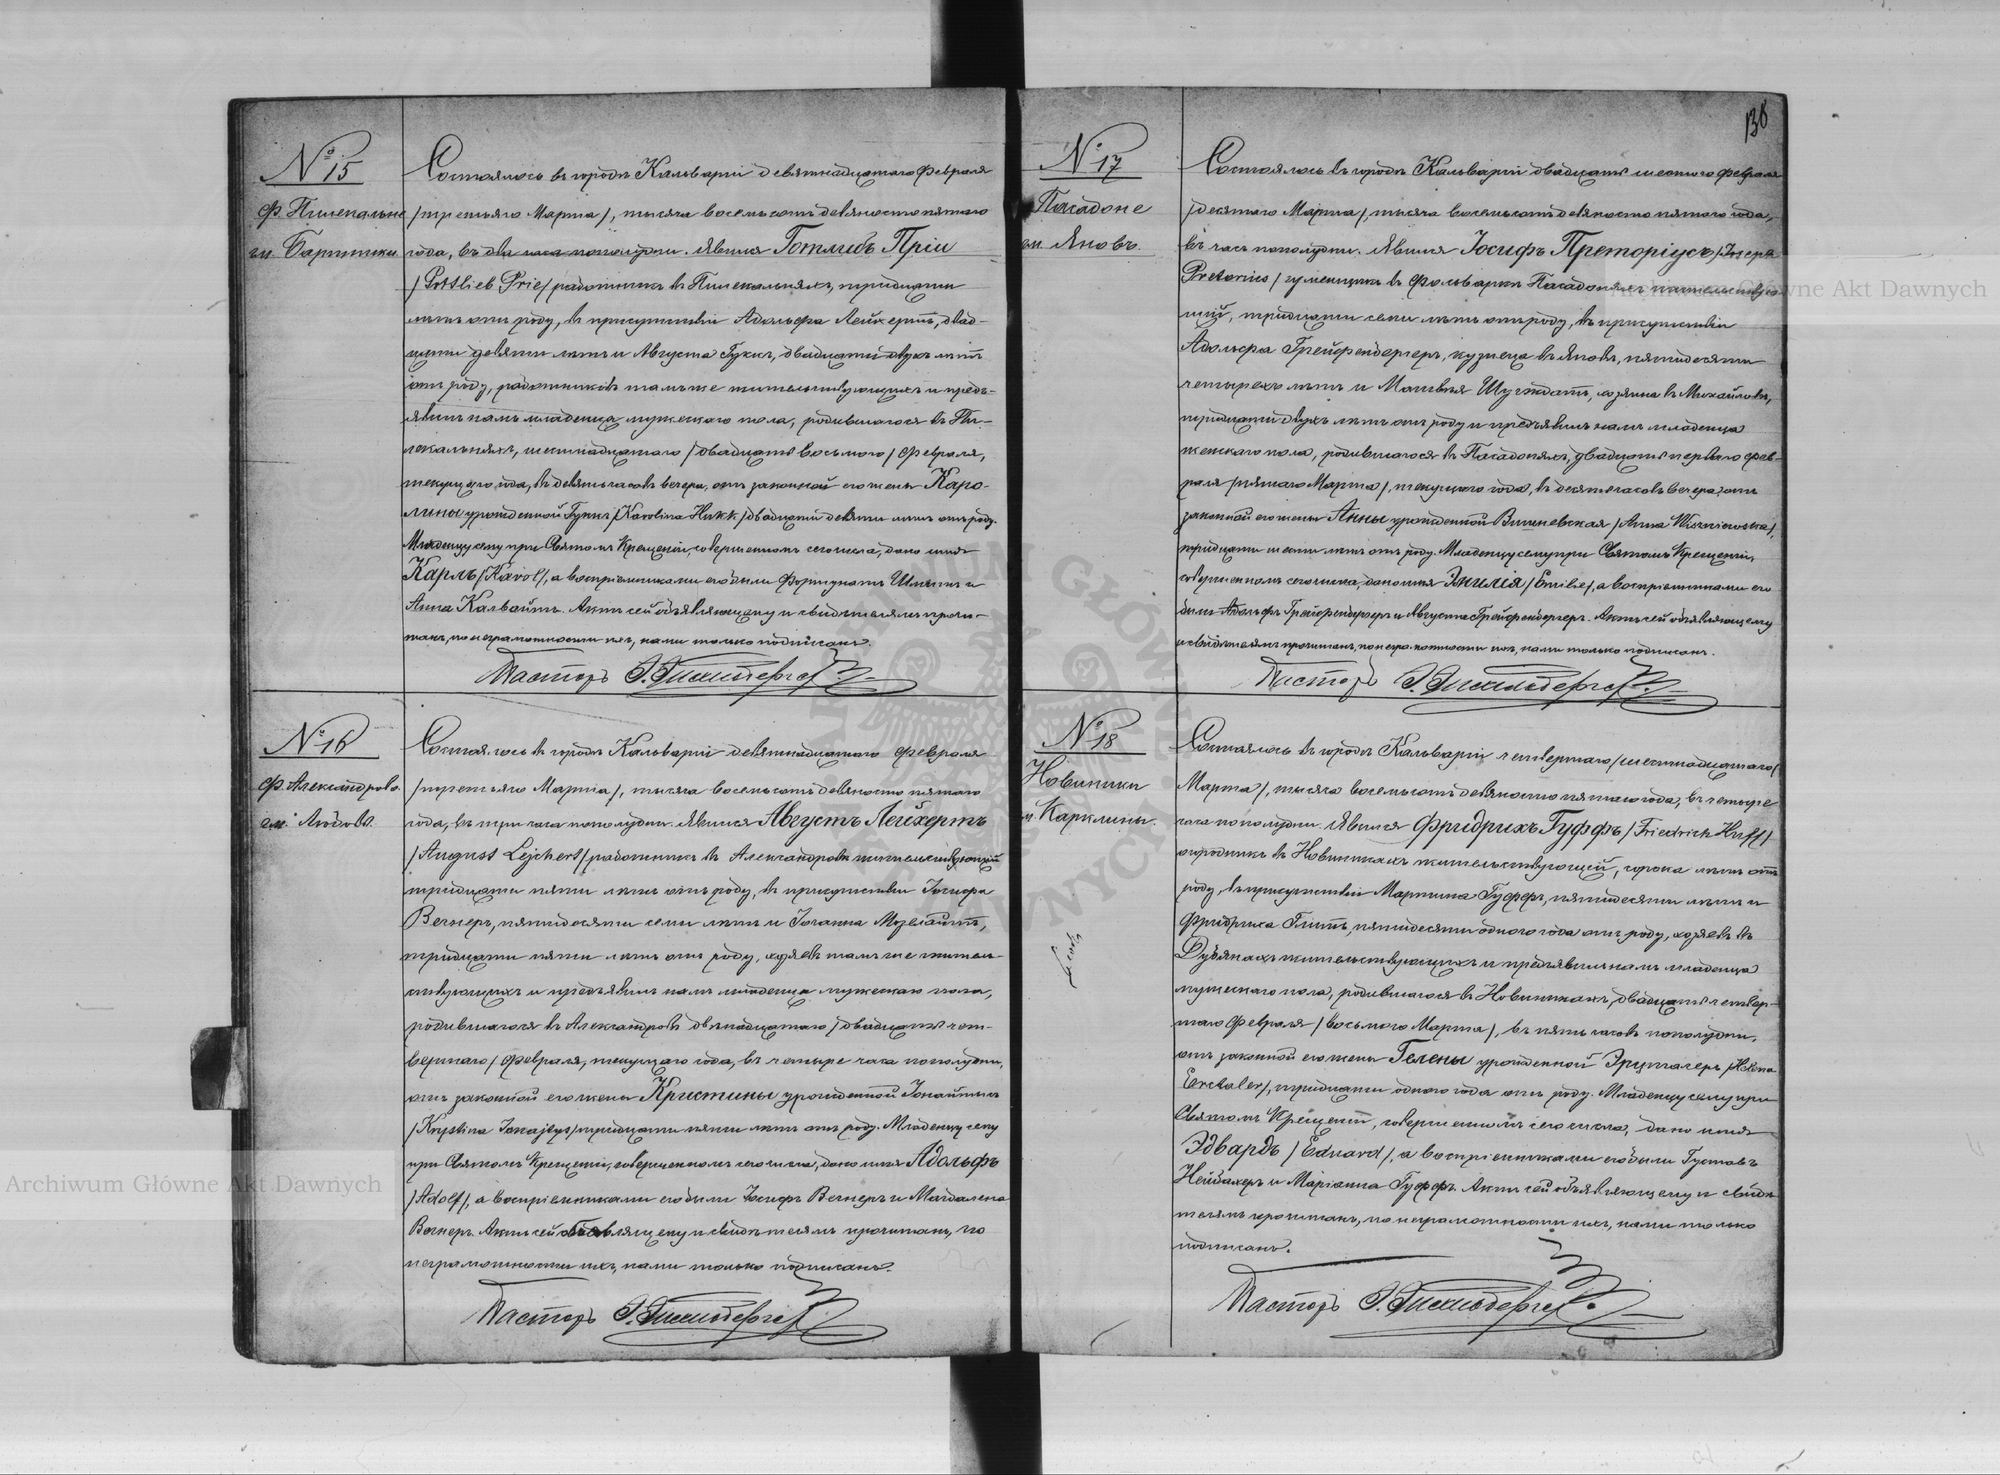 № 15
Ф. Пилекальне
гм. Бартники
Состоялось въ городѣ Кальваріи девятнадцатаго Февраля
/третьяго Марта/, тысяча восемьсотъ девяносто пятаго
года, въ два часа пополудни. Явился Готлибъ Пріи
/Gottlieb Prie/ работникъ въ Пилекальняхъ, тридцати
лѣтъ отъ роду, въ присутствіи Адольфа Лейхертъ, двад-
цати девяти лѣтъ и Августа Гуккъ, двадцати двухъ лѣтъ
отъ роду, работниковъ тамъ же жительствующихъ и предъ-
явилъ намъ младенца мужескаго пола, родившагося въ Пи-
лекальняхъ, шестнадцатаго /двадцать восьмого/ Февраля,
текущаго года, въ девять часовъ вечера, отъ законной его жены Каро-
лины урожденной Гуккъ /Karolina Hukk/ двадцати девяти лѣтъ отъ роду.
Младенцу сему при Святомъ Крещеніи, совершенномъ сего числа, дано имя
Карлъ /Karol/, а воспріемниками его были Фортунатъ и
Анна Калвайтъ. Актъ сей объявляющему и свидѣтелямъ прочи-
танъ, по неграмотности ихъ, нами только подписанъ.
Пасторъ
№ 16
Ф. Александрово.
гм. Любово.
Состоялось въ городѣ Кальваріи девятнадцатаго Февраля
/третьяго Марта/, тысяча восемьсотъ девяносто пятаго
года, въ три часа пополудни. Явился Августъ Лейхертъ
/August Lejchert/ работникъ въ Александровѣ жительствующій
тридцати пяти лѣтъ отъ роду, въ присутствіи Іосифа
Вегнеръ, пятидесяти семи лѣтъ и Іоганна Мозелайтъ,
тридцати пяти лѣтъ отъ роду, хозяевъ тамъ же житель-
ствующихъ и предъявилъ намъ младенца мужескаго пола,
родившагося въ Александровѣ двѣнадцатаго /двадцать чет-
вертаго/ Февраля, текущаго года, въ четыре часа пополудни,
отъ законной его жены Кристины урожденной Іонайтысъ
/Krystina Jonajtys/ тридцати пяти лѣтъ отъ роду. Младенцу сему
при Святомъ Крещеніи, совершенномъ сего числа, дано имя Адольфъ
/Adolf/, а воспріемниками его были Іосифъ Вегнеръ и Магдалена
Вегнеръ. Актъ сей объявляющему и свидѣтелямъ прочитанъ, по
неграмотности ихъ, нами только подписанъ.
Пасторъ
138
№ 17
Пагадоне
гм. Яновъ.
Состоялось въ городѣ Кальваріи двадцать шестого Февраля
/десятаго Марта/, тысяча восемьсотъ девяносто пятаго года,
въ часъ пополудни. Явился Іосифъ Преторіусъ /Jozef
Pretorius/ гуменщикъ въ Фольваркѣ Пагадоняхъ жительствую-
щій, тридцати семи лѣтъ отъ роду, въ присутствіи
Адольфа Грейфенбергеръ, кузнеца въ Яновѣ, пятидесяти
четырехъ лѣтъ и Матвѣя Шугждатъ, хозяина въ Михайловѣ,
тридцати двухъ лѣтъ отъ роду и предъявилъ намъ младенца
женскаго пола, родившагося въ Пагадоняхъ, двадцать перваго Фев-
раля /пятаго Марта/, текущаго года, въ десять часовъ вечера, отъ
законной его жены Анны урожденной Вишневская /Anna Wiszniewska/,
тридцати шести лѣтъ отъ роду. Младенцу сему при Святомъ Крещеніи,
совершенномъ сего числа, дано имя Эмилія /Emilie/, а воспріемниками его
были Адольфъ Грейфенбергеръ и Августа Грейфенбергеръ. Актъ сей объявляющему
и свидѣтелямъ прочитанъ, по неграмотности ихъ, нами только подписанъ.
Пасторъ
№ 18
Новиники
гм. Карклины.
Состоялось въ городѣ Кальваріи четвертаго /шестнадцатаго/
Марта/, тысяча восемьсотъ девяносто пятаго года, въ четыре
часа пополудни. Явился Фридрихъ Гуффъ /Friedrich Huff/
огородникъ въ Новиникахъ жительствующій, сорока лѣтъ отъ
роду, въ присутствіи Мартина Гуффъ, пятидесяти лѣтъ и
Фридриха, пятидесяти одного года отъ роду, хозяевъ въ
Дубянахъ жительствующихъ и предъявилъ намъ младенца
мужескаго пола, родившагося въ Новиникахъ, двадцать четвер-
таго Февраля /восьмого Марта/, въ пять часовъ пополудни,
отъ законной его жены Гелены урожденной Эрцталеръ /Helena
Erctaler/, тридцати одного года отъ роду. Младенцу сему при
Святомъ Крещеніи, совершенномъ сего числа, дано имя
Эдвардъ /Eduard/, а воспріемниками его были Густавъ
Нейбахеръ и Маріанна Гуффъ. Актъ сей объявляющему и свидѣ-
телямъ прочитанъ, по неграмотности ихъ, нами только
подписанъ.
Пасторъ
Archiwum Główne Akt Dawnych
Archiwum Główne Akt Dawnych